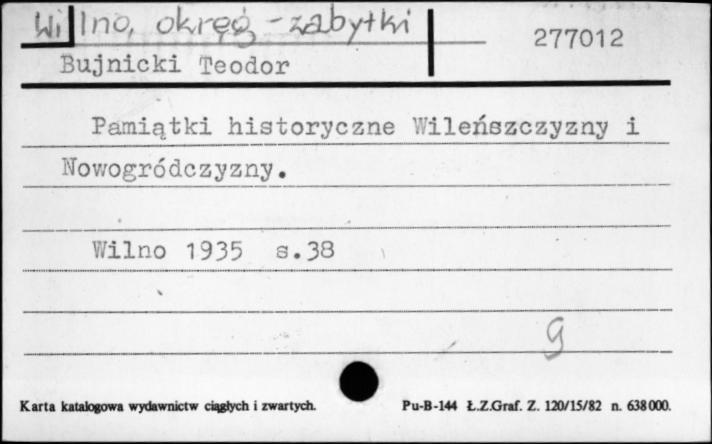 Wilno, okręg - zabytki
277012
Bujnicki Teodor
Pamiątki historyczne Wileńszczyzny i
Nowogródczyzny.
Wilno 1935 s.38
g
Karta katalogowa wydawnictw ciągłych i zwartych.
Pu-B-144 Ł.Z.Graf. Z. 120/15/82 n. 638000.